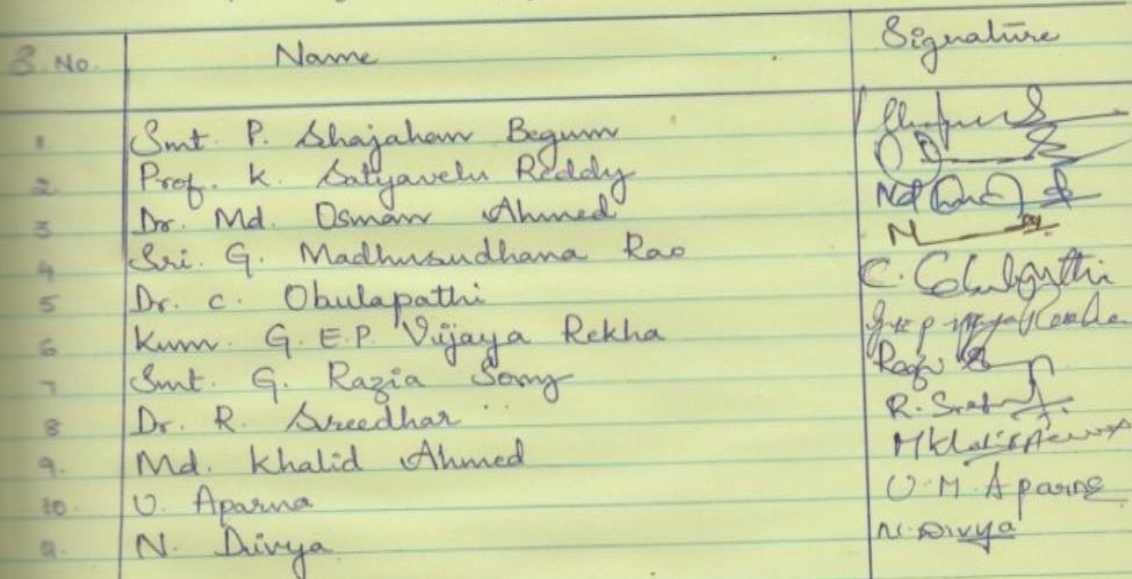 S. No. Name Signature
1 Smt. P. Shajahan Begum
2. Prof. K. Satyavelu Reddy
3 Dr. Md. Osman Ahmed
4 Sri. G. Madhusudhana Rao N
5 Dr. C. Obulapathi C. Obulapathi
6 Kum. G. E.P. Vijaya Rekha
7 Smt. G. Razia Somy
8 Dr. R. Sreedhar R.
9. Md. Khalid Ahmed
10 U. Aparna U. M. Aparna
9. N. Divya N. Divya